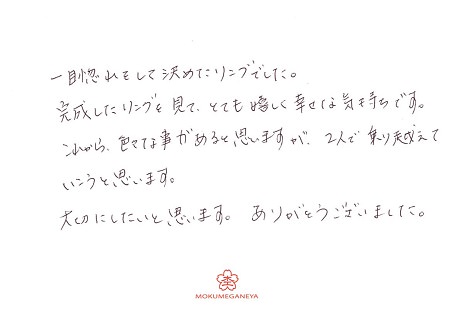 一目惚れをして決めたリングでした。
完成したリングを見て、とても嬉しく幸せな気持ちです。
これから、色々な事があると思いますが、2人で乗り越えて
いこうと思います。
大切にしたいと思います。 ありがとうございました。
MOKUMEGANEYA